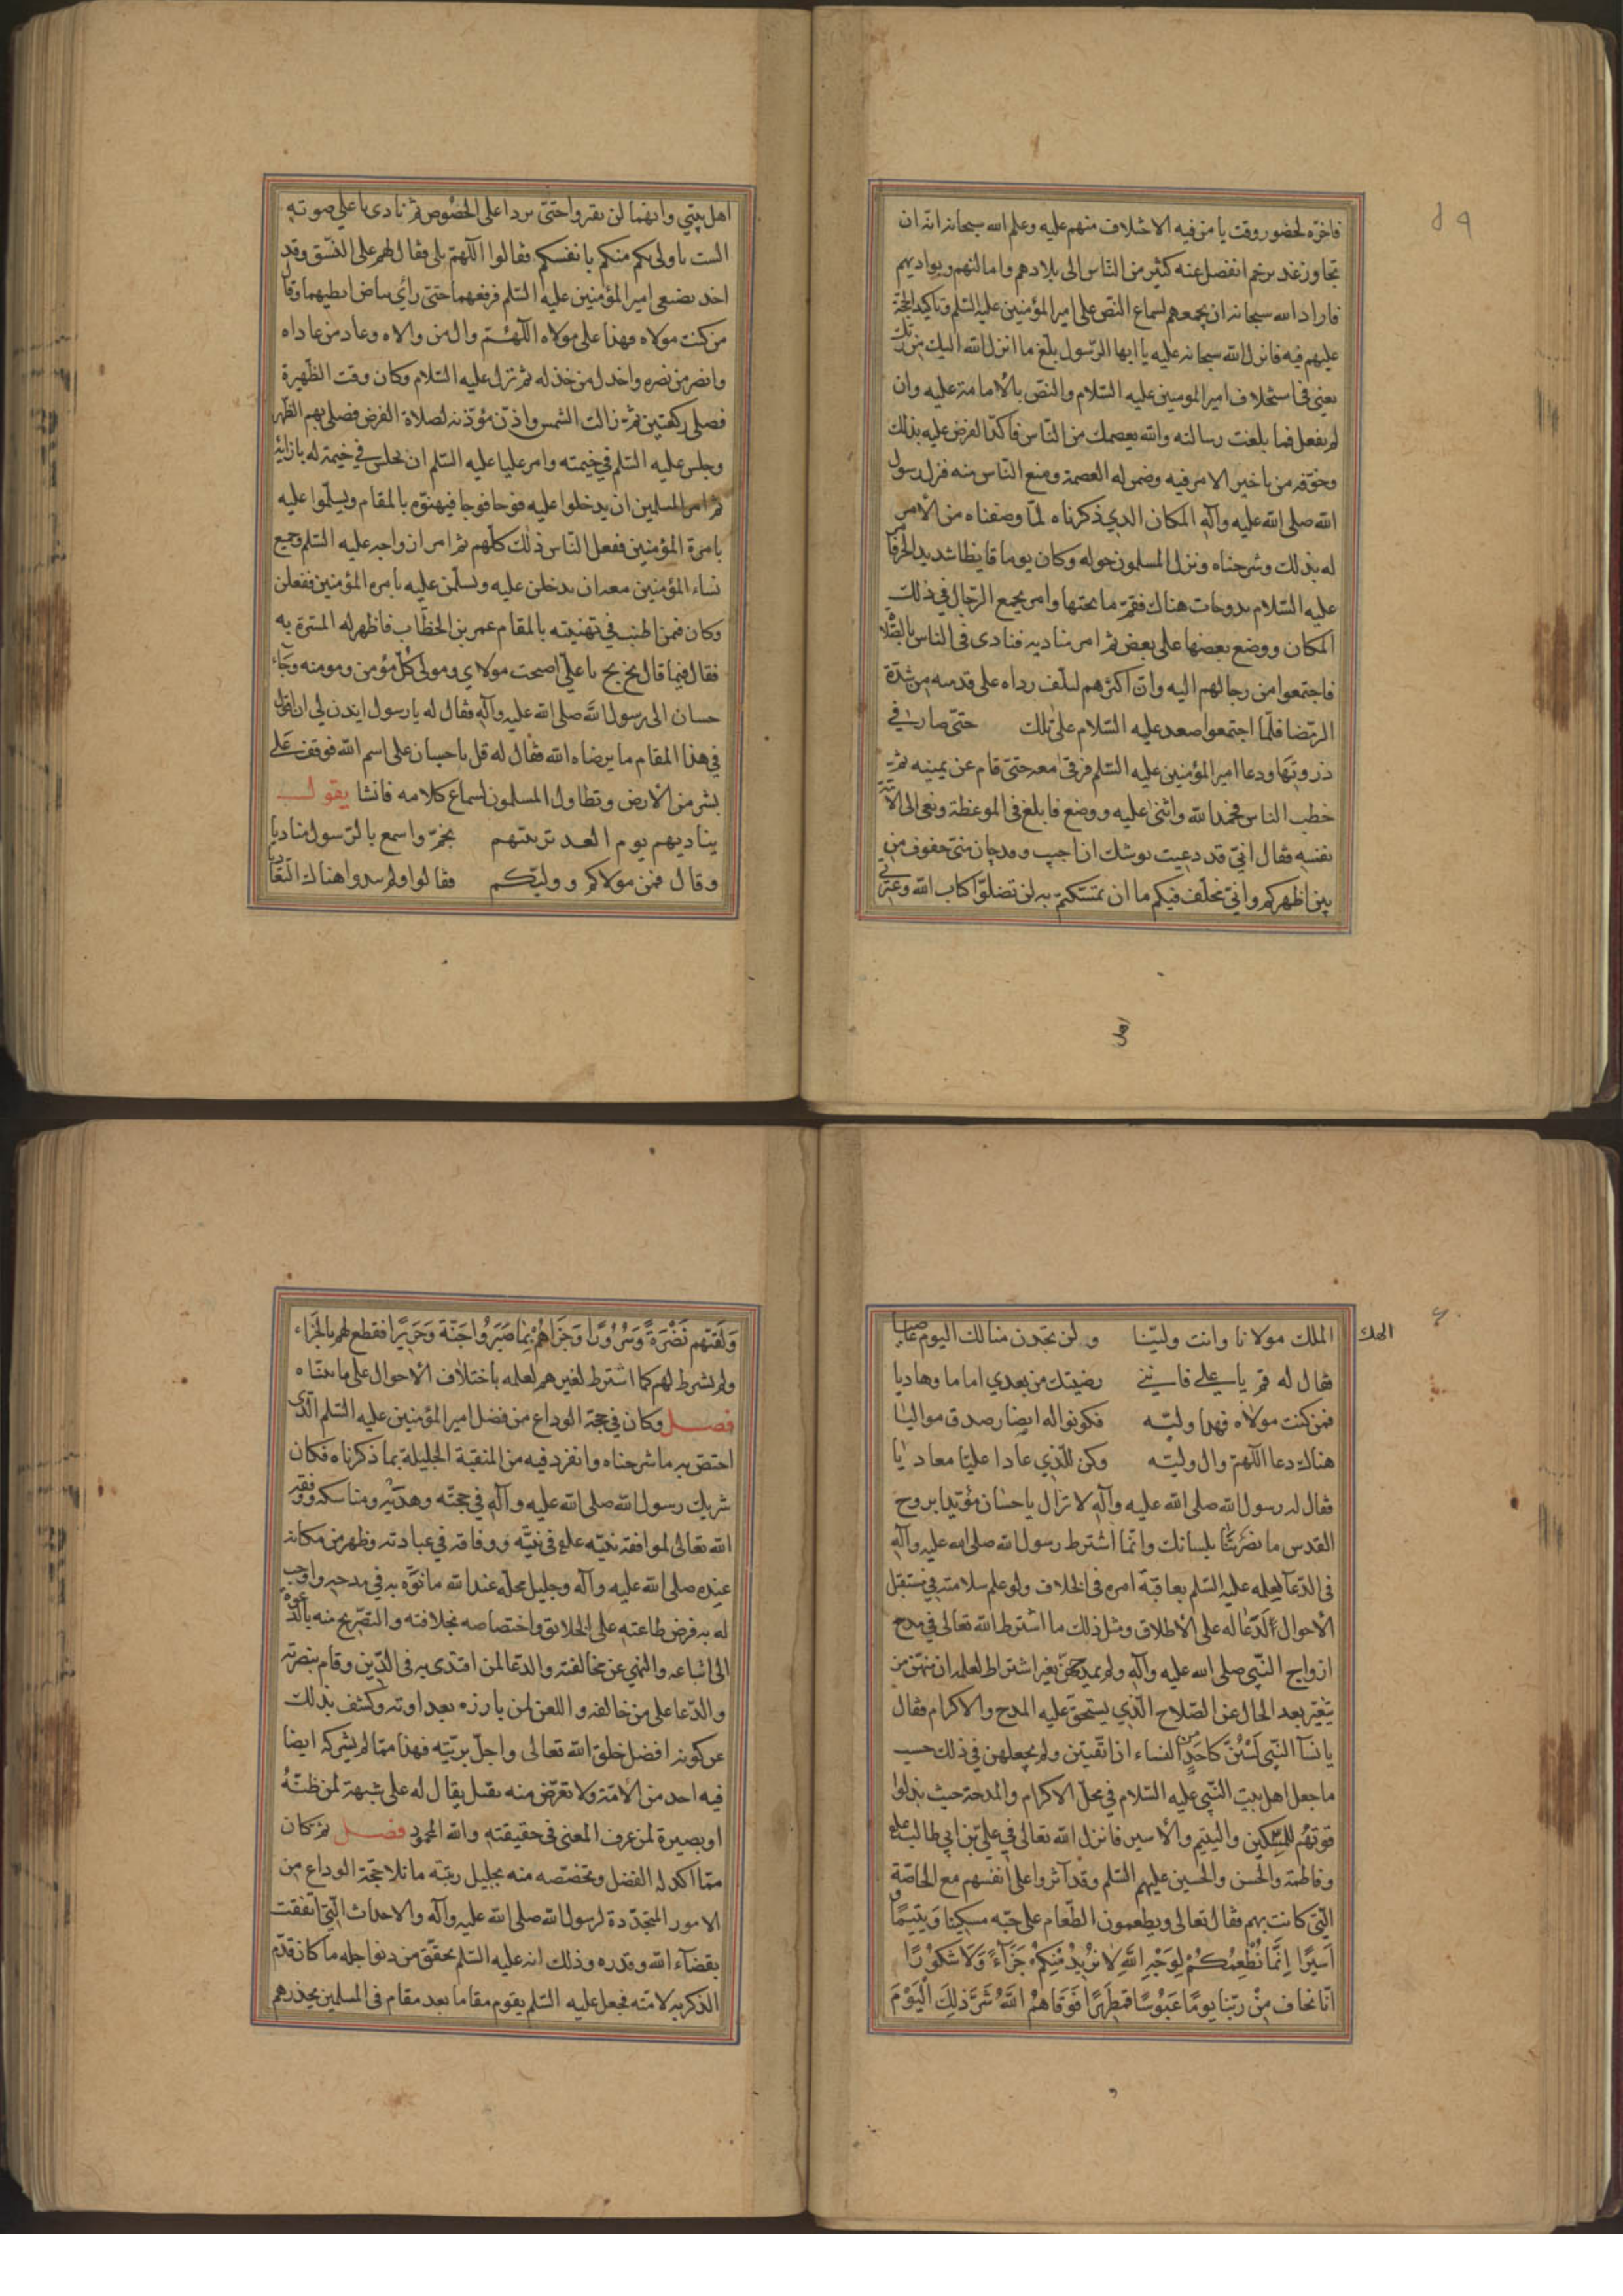 ٥٩
فاخره لحضور وقت يا من فيه الاختلاف منهم عليه وعلم الله سبحانه انه ان
تجاوز غدير خم انفصل عنه كثير من الناس الى بلادهم واماكنهم وبواديهم
فاراد الله سبحانه ان يجمعهم لسماع النص على امير المؤمنين عليه السلم وتاكيد الحجة
عليهم فيه فانزل الله سبحانه عليه يا ايها الرسول بلغ ما انزل الله اليك من ربك
يعني في استخلاف امير المومنين عليه السلام والنص بالامامة عليه وان
لم تفعل فما بلغت رسالته والله يعصمك من الناس فاكد الفرض عليه بذلك
وخوفه من تاخير الامر فيه وضمن له العصمة ومنع الناس منه فنزل رسول
الله صلى الله عليه وآله المكان الذي ذكرناه لما وصفناه من الامر
له بذلك وشرحناه ونزل المسلمون حوله وكان يوما قايظا شديد الحر فامر
عليه السلام بدوحات هناك فقم ما تحتها وامر بجمع الرحال في ذلك
المكان ووضع بعضها على بعض ثم امر مناديه فنادى في الناس بالصلاة
فاجتمعوا من رحالهم اليه وان اكثرهم ليلف رداه على قدميه من شدة
الرمضا فلما اجتمعوا صعد عليه السلام على تلك حتى صار في
ذروتها ودعا امير المؤمنين عليه السلم فرقى معه حتى قام عن يمينه ثم
خطب الناس فحمد الله واثنى عليه ووضع فابلغ في الموعظة ونعى الى الامة
نفسه فقال اني قد دعيت يوشك ان اجيب وقد حان مني خفوف من
بين اظهركم واني مخلف فيكم ما ان تمسكتم به لن تضلوا كتاب الله وعترتي
اهل
اهل بيتي وانهما لن يفترقا حتى يردا على الحوض ثم نادى باعلى صوته
الست باولى بكم منكم بانفسكم فقالوا اللهم بلى فقال لهم على النسق وقد
اخد بضبعي امير المؤمنين عليه السلم فرفعهما حتى رأي بياض ابطيهما وقال
من كنت مولاه فهذا على مولاه اللهم وال من والاه وعاد من عاداه
وانصر من نصره واخدل من خذله ثم نزل عليه السلام وكان وقت الظهيرة
فصلى ركعتين ثم زالت الشمس واذن مؤذنه لصلاة الفرض فصلى بهم الظهر
وجلس عليه السلم في خيمته وامر عليا عليه السلم ان يجلس في خيمة له بازائه
ثم امر المسلمين ان يدخلوا عليه فوجا فوجا فيهنؤه بالمقام ويسلموا عليه
بامرة المؤمنين ففعل الناس ذلك كلهم ثم امر ازواجه عليه السلم وجميع
نساء المؤمنين معه ان يدخلن عليه ويسلمن عليه بامرة المؤمنين ففعلن
وكان فمن اطنب في تهنيته بالمقام عمر بن الخطاب فاظهر له المسرة به
فقال فيما قال بخ بخ يا علي اصبحت مولاي ومولى كل مؤمن ومومنه وجاء
حسان الى رسول الله صلى الله عليه وآله فقال له يا رسول ايدن لي ان اقول
في هذا المقام ما يرضاه الله فقال له قل يا حسان على اسم الله فوقف على
نشر من الارض وتطاول المسلمون لسماع كلامه فانشا يقول
يناديهم يوم الغدير نبيهم بخم واسمع بالرسول مناديا
وقال فمن مولاكم ووليكم فقالوا ولم يبدوا هناك التعاديا
٦٠
الهك
الملك مولانا وانت ولينا ولن تجدن منا لك اليوم عاصيا
فقال له قم يا علي فانني رضيتك من بعدي اماما وهاديا
فمن كنت مولاه فهذا وليه فكونوا له ايضا رصدق مواليا
هناك دعا اللهم وال وليه وكن للذي عادا عليا معاديا
فقال له رسول الله صلى الله عليه وآله لا تزال يا حسان مؤيدا بروح
القدس ما نصرتنا بلسانك وانما اشترط رسول الله صلى الله عليه وآله
في الدعا لعلمه عليه السلم بعاقبة امره في الخلاف ولو علم سلامته في مستقبل
الاحوال لدعا له على الاطلاق ومثل ذلك ما اشترط الله تعالى في مدح
ازواج النبي صلى الله عليه وآله ولم يمدحهن بغير اشتراط لعلمه ان منهن من
يتغير بعد الحال عن الصلاح الذي يستحق عليه المدح والاكرام فقال
يا نسآ النبي لستن كاحد من النساء ان اتقيتن ولم يجعلهن في ذلك حسب
ما جعل اهل بيت النبي عليه السلام في محل الاكرام والمدحة حيث بذلوا
قوتهم للمسكين واليتيم والاسير فانزل الله تعالى في علي بن ابي طالب علي
وفاطمة والحسن والحسين عليهم السلم وقد آثروا على انفسهم مع الخاصة
التي كانت بهم فقال تعالى ويطعمون الطعام على حبه مسكينا ويتيما و
اَسِيرًا اِنَّمَا نُطْعِمُكُمْ لِوَجْهِ اللهِ لا نُرِيدُ مِنْكُمْ جَزَآءً وَلَا شُكُورًا
انا نخاف مِنْ ربنا يومًا عَبُوسًا قمطَرِيرًا فَوَقَاهُمُ اللهُ شَرَّ ذلِكَ الْيَوْمَ
و
وَلَقّاهُم نَضْرَةً وَسُرُورًا وَجَزَاهُمْ بِمَا صَبَرُوا جَنَّةً وَحَرِيرًا فقطع لهم بالجزاء
ولم يشرط لهم كما اشترط لغيرهم لعلمه باختلاف الاحوال على ما بيناه
فصل وكان في حجة الوداع من فضل امير المؤمنين عليه السلم الذي
اختص به ما شرحناه وانفرد فيه من المنقبة الجليلة بما ذكرناه فكان
شريك رسول الله صلى الله عليه وآله في حجته وهديه ومناسكه ووفقه
الله تعالى لموافقة نبيه علع في نيته ووفاقه في عبادته وظهر من مكانه
عنده صلى الله عليه وآله وجليل محله عند الله ما نوه به في مدحه واوجب
له به فرض طاعته على الخلائق واختصاصه بخلافته والتصريح منه بالدعوة
الى اتباعه والنهي عن مخالفته والدعا لمن اقتدى به في الدين وقام بنصرته
والدعا على من خالفه واللعن لمن بارزه بعداوته وكشف بذلك
عن كونه افضل خلق الله تعالى واجل بريته فهذا مما لم يشركه ايضا
فيه احد من الامة ولا تعرض منه بفضل يقال له على شبهة لمن ظنه
او بصيرة لمن عرف المعنى في حقيقته والله المحمود فصل ثم كان
مما اكد له الفضل وتخصصه منه بجليل رتبته ما تلا حجة الوداع من
الامور المتجددة لرسول الله صلى الله عليه وآله والاحداث التي اتفقت
بقضآء الله وقدره وذلك انه عليه السلم تحقق من دنو اجله ما كان قدم
الذكر به لامته فجعل عليه السلم يقوم مقاما بعد مقام في المسلمين يحذرهم